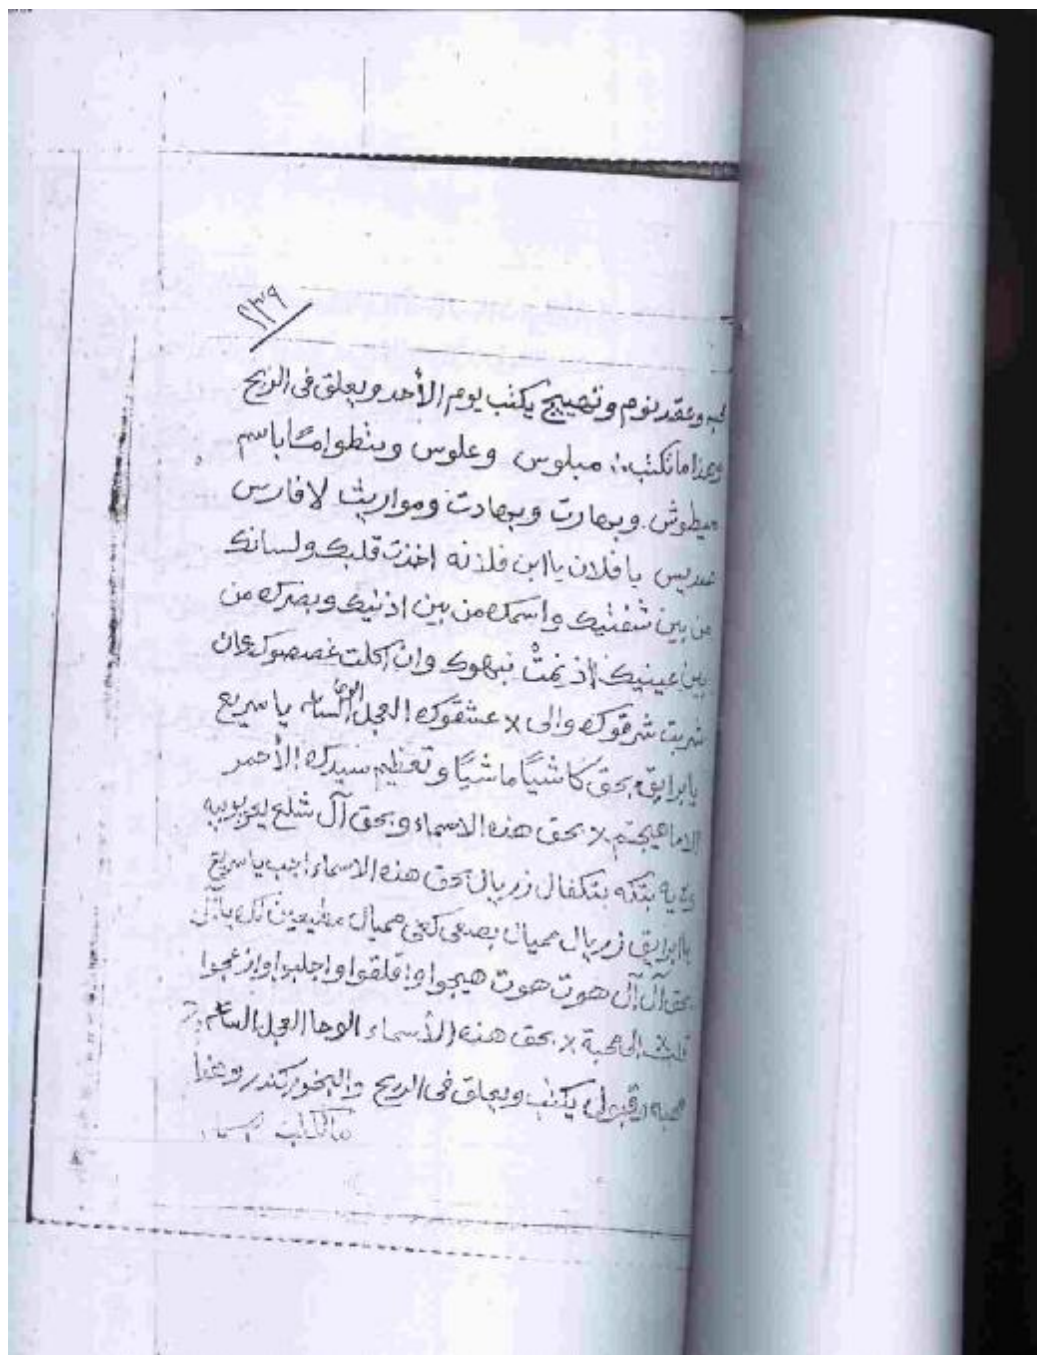 ٢٣٩
وعقد نوم وتهييج يكتب يوم الأحد ويعلق فى الريح
وهذا ما تكتب: مبلوس وعلوس وبنطوا باسم
ميطوش وبهارت وبهادت ومواريث لا فارس
يا فلان يا ابن فلانه اخذت قلبك ولسانك
من بين شفتيك واسمك من بين اذنيك وبصرك من
بين عينيك اذ نمت نبهوك وان اكلت غصصوك وان
شربت شرقوك والى لا عشقوك العجل الساعه يا سريع
يا برايق بحق كاشيًا ماشيًا وتعظيم سيدك الأحمر
الا ما هيجتم لا بحق هذه الاسماء وبحق آل شلع يعربوبيه
يه بتكه بتكفال زريال بحق هذه الاسماء اجب يا سريع
يا ابرايق زريال مميال مميال مطيعين
بحق آل آل هوت هوت هيجوا واقلقوا واجلبوا وازعجوا
الى محبة لا بحق هذه الأسماء الوحا العجل الساعه
محبه وقبول يكتب ويعلق فى الريح والبخور كندر وهذا
ما تكتب